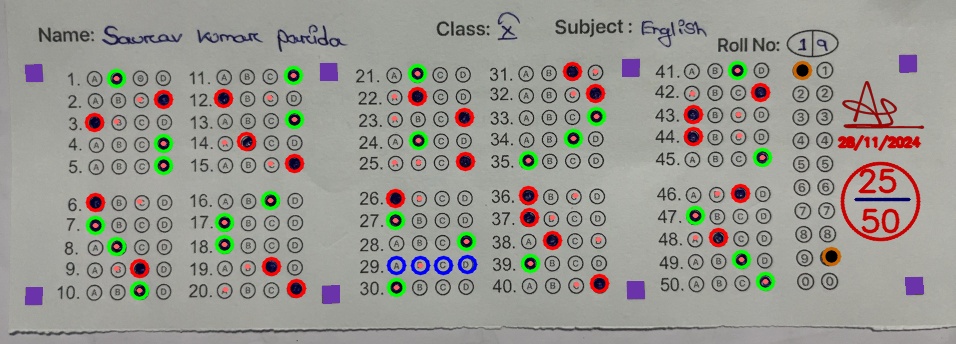 Name: Saurav Kumar Parida
Class: X
Subject: English
Roll No: 19
1. A C D
2. A B C
3. B C D
4. A B C
5. A B C
6. B C D
7. B C D
8. A C D
9. A B D
10. A B D
11. A B C
12. B C D
13. A B C
14. A C D
15. A B C
16. A B D
17. B C D
18. B C D
19. A B D
20. A B C
21. A C D
22. A C D
23. A B C
24. A C D
25. A B C
26. B C D
27. B C D
28. A B C
29. A B C D
30. B C D
31. A B D
32. A B C
33. A B C
34. A B D
35. B C D
36. B C D
37. B C D
38. A C D
39. B C D
40. A B C
41. A B D
42. A B C
43. B C D
44. B C D
45. A B C
46. A B D
47. B C D
48. A C D
49. A B D
50. A B C
1
2 2
3 3
4 4
5 5
6 6
7 7
8 8
9
0 0
28/11/2024
25
50